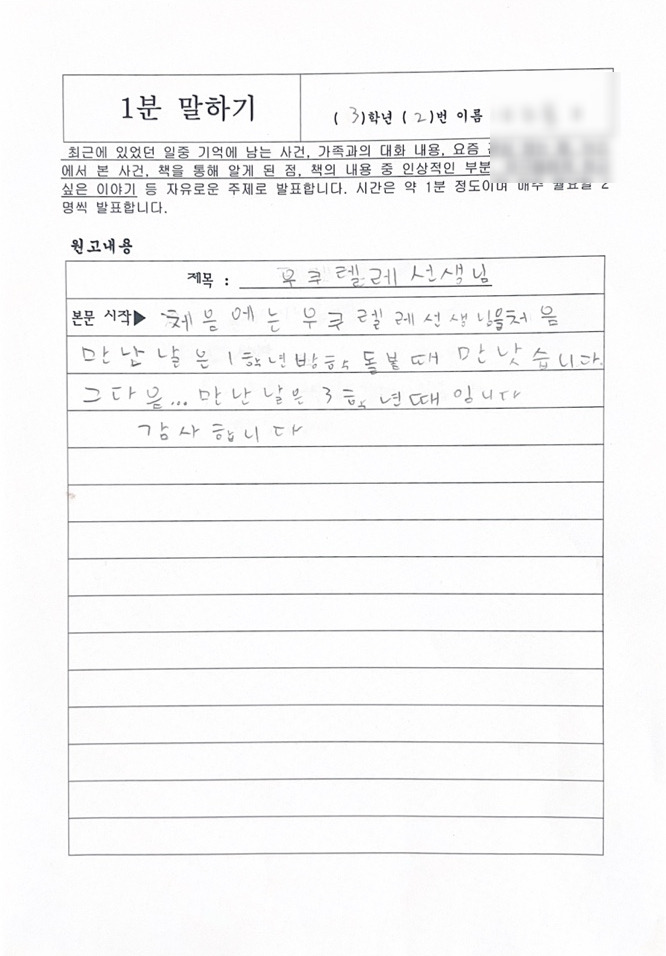 1분 말하기
( 3 )학년 ( 2 )번 이름
최근에 있었던 일중 기억에 남는 사건, 가족과의 대화 내용, 요즘
에서 본 사건, 책을 통해 알게 된 점, 책의 내용 중 인상적인 부분
싶은 이야기 등 자유로운 주제로 발표합니다. 시간은 약 1분 정도이며 매주 월요일 2
명씩 발표합니다.
원고내용
제목 : 우쿠렐레선생님
본문 시작▶ 처음에는 우쿠렐레선생님을처음
만난날은1학년방학돌봍때 만낫습니다.
그다음... 만난날은 3학년때입니다
감사합니다